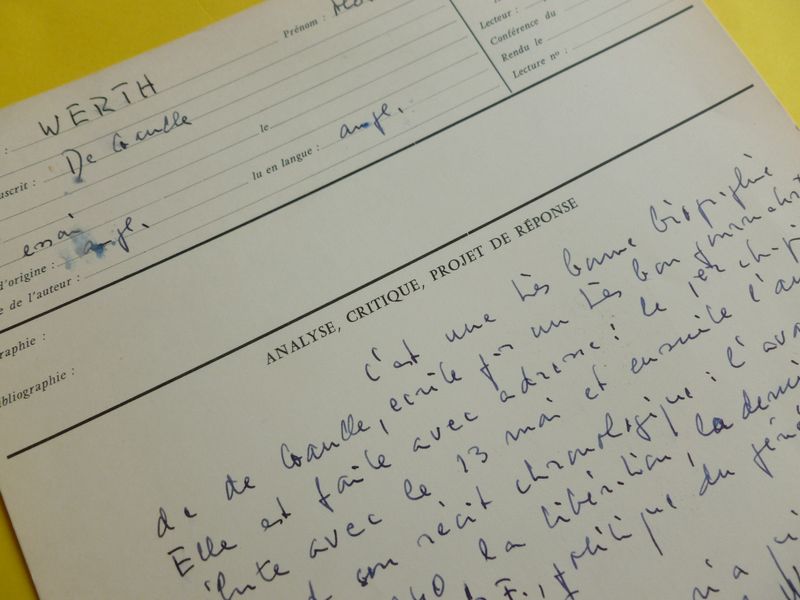 Prénom :
Lecteur :
Conférence du
Rendu le
Lecture nº :
: WERTH
uscrit : De Gaulle le
essai lu en langue : angl.
d'origine : angl.
e de l'auteur :
raphie :
bibliographie :
ANALYSE, CRITIQUE, PROJET DE RÉPONSE
C'est une très bonne biographie
de de Gaulle, écrite par un très bon journalist
Elle est faite avec adresse : le 1er chap
bute avec le 13 mai et ensuite l'au
son récit chronologique : l'ava
40 la libération, la derni
F., politique du géné